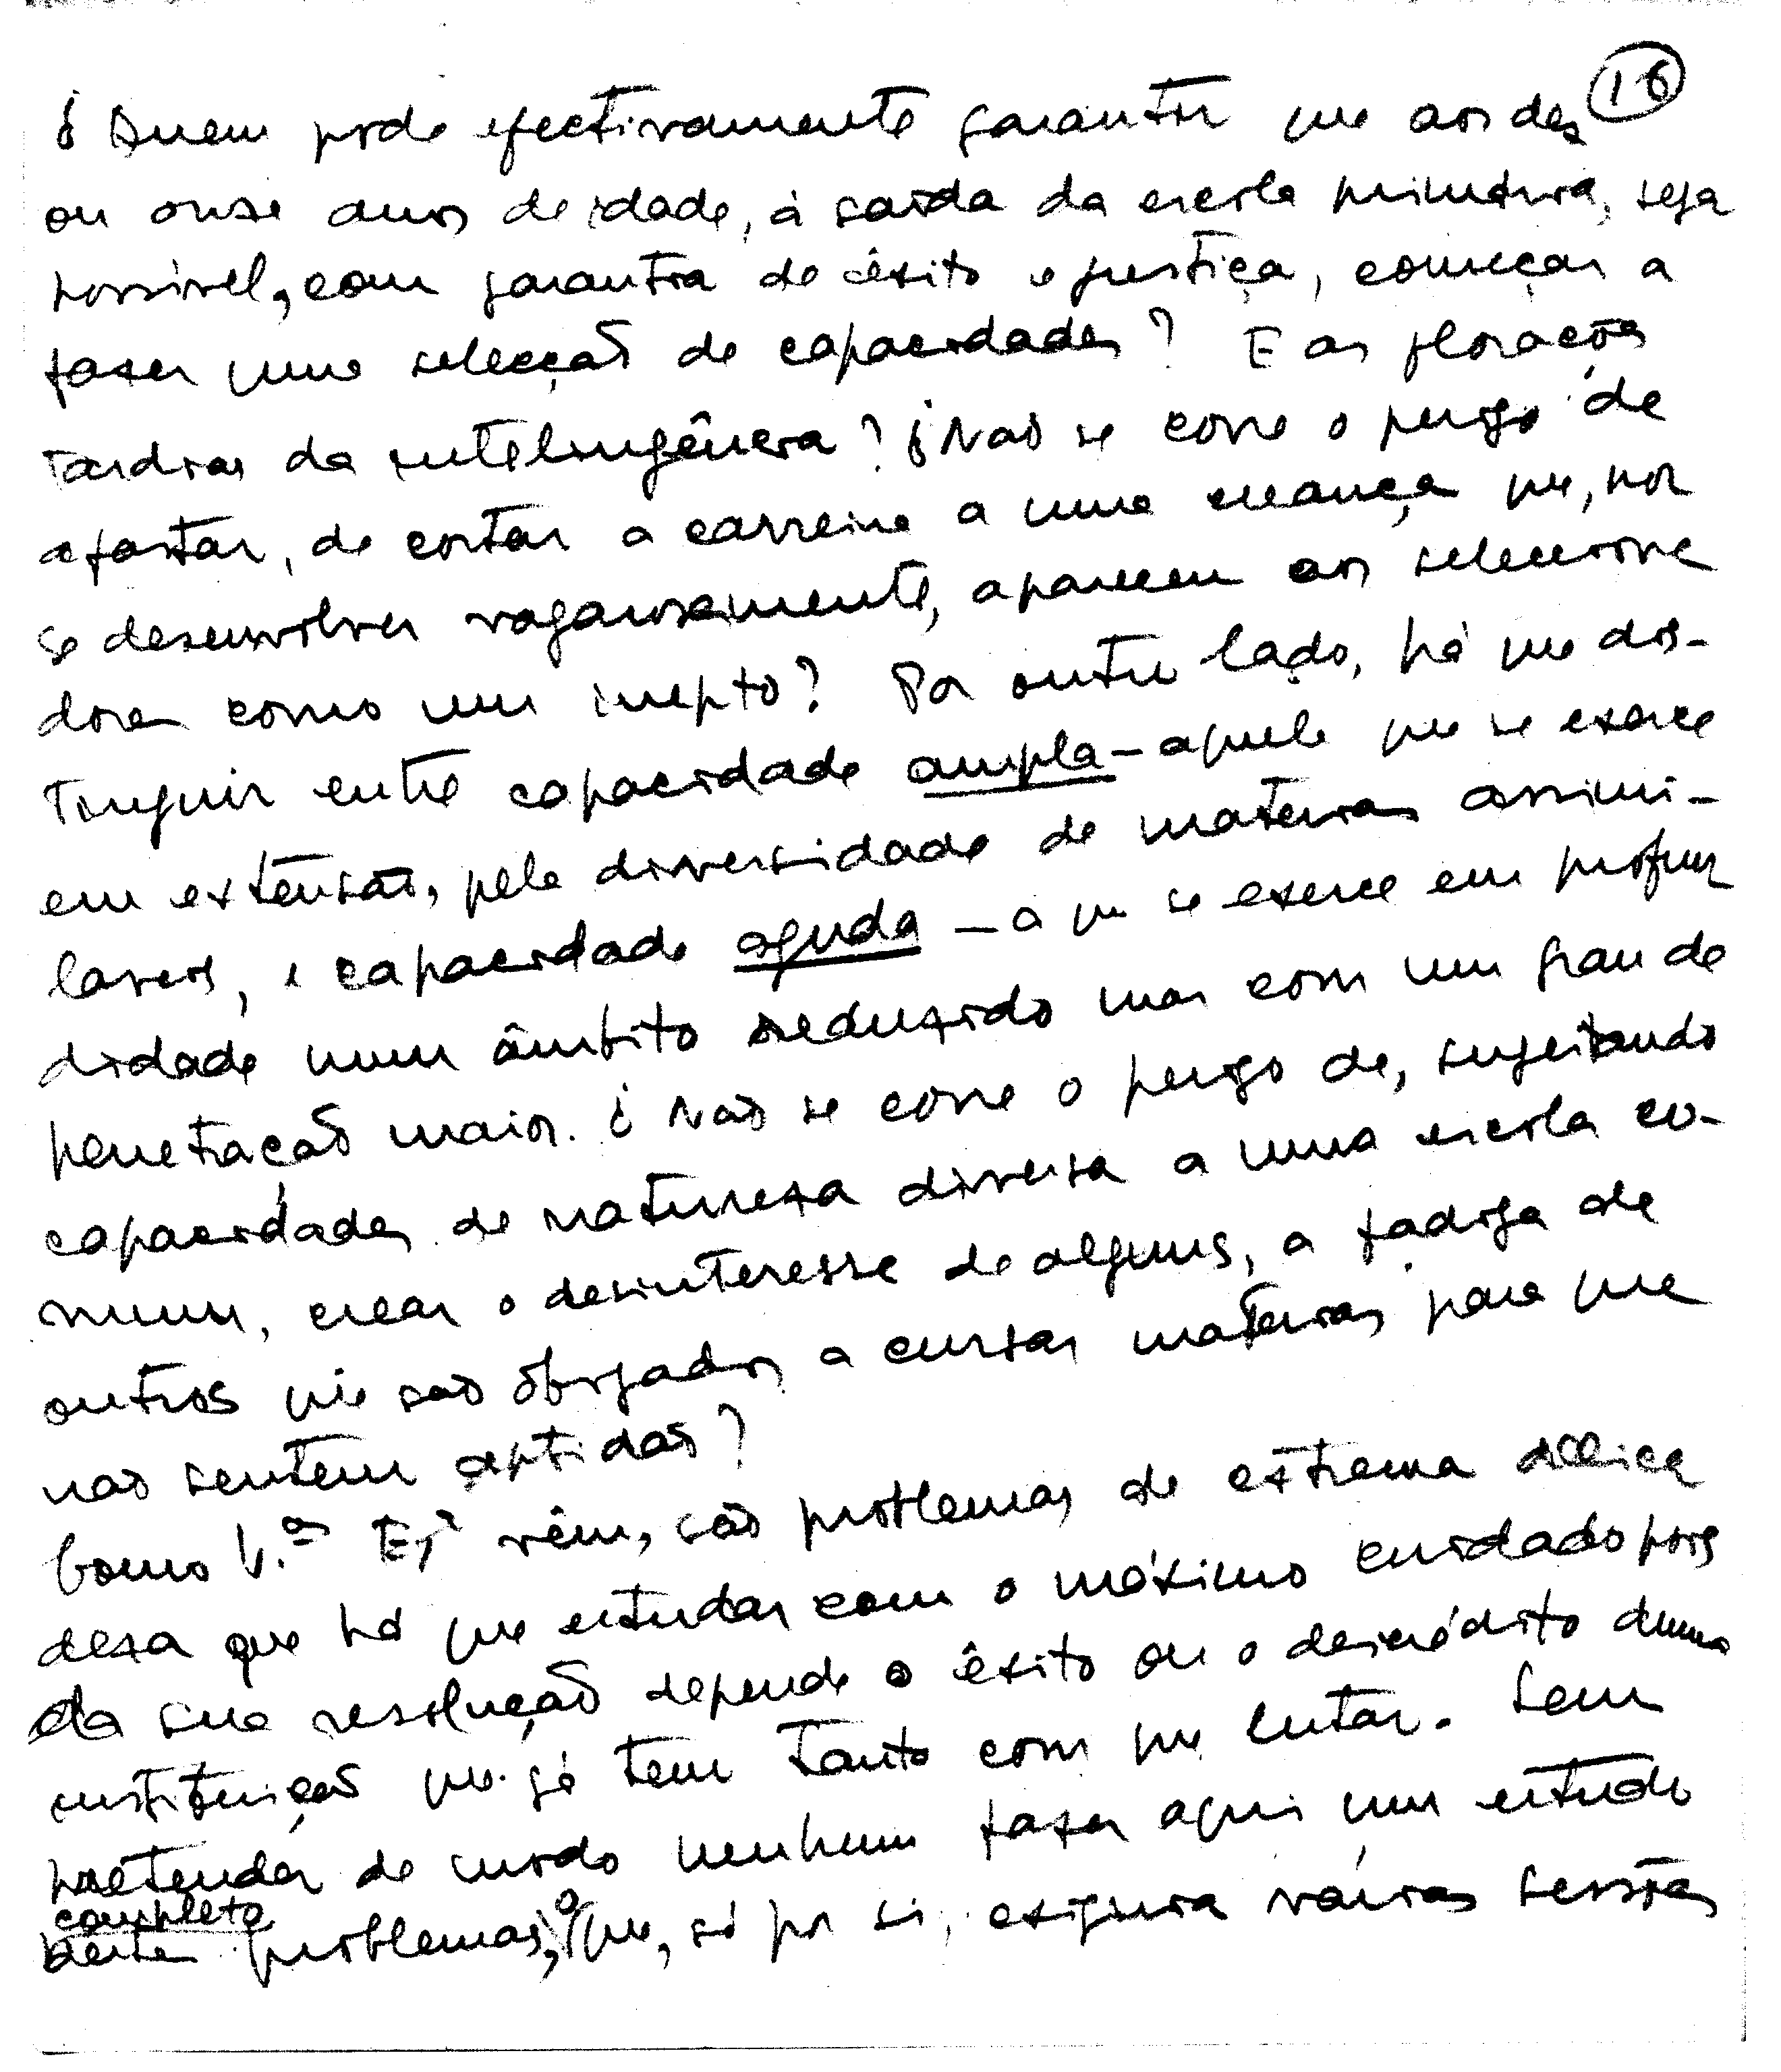 16
¿ Quem pode efectivamente garantir que aos dez
ou onze anos de idade, à saída da escola primária, seja
possível, com garantia de êxito e justiça, começar a
fazer uma selecção de capacidades? E as florações
tardias da inteligência? ¿ Não se corre o perigo de
afastar, de cortar a carreira a uma creança que, por
se desenvolver vagarosamente, apareceu aos selecciona
dores como um inepto? Por outro lado, há que dis-
tinguir entre capacidade ampla – aquela que se exerce
em extensão, pela diversidade de matérias assimi-
laveis, e capacidade aguda – a que se exerce em profun
didade num âmbito reduzido mas com um grau de
penetração maior. ¿ Não se corre o perigo de, sujeitando
capacidades de natureza diversa a uma escola co-
mum, crear o desinteresse de alguns, a fadiga de
outros que são obrigados a cursar matérias para que
não sentem aptidão?
Como V.as Ex.as vêm, são problemas de extrema delica
deza que há que estudar com o máximo cuidado pois
da sua resolução depende o êxito ou o descrédito duma
instituição que já tem tanto com que lutar. Sem
pretender de modo nenhum fazer aqui um estudo
completo
deste problema, o que, só por si, exigiria várias sessões